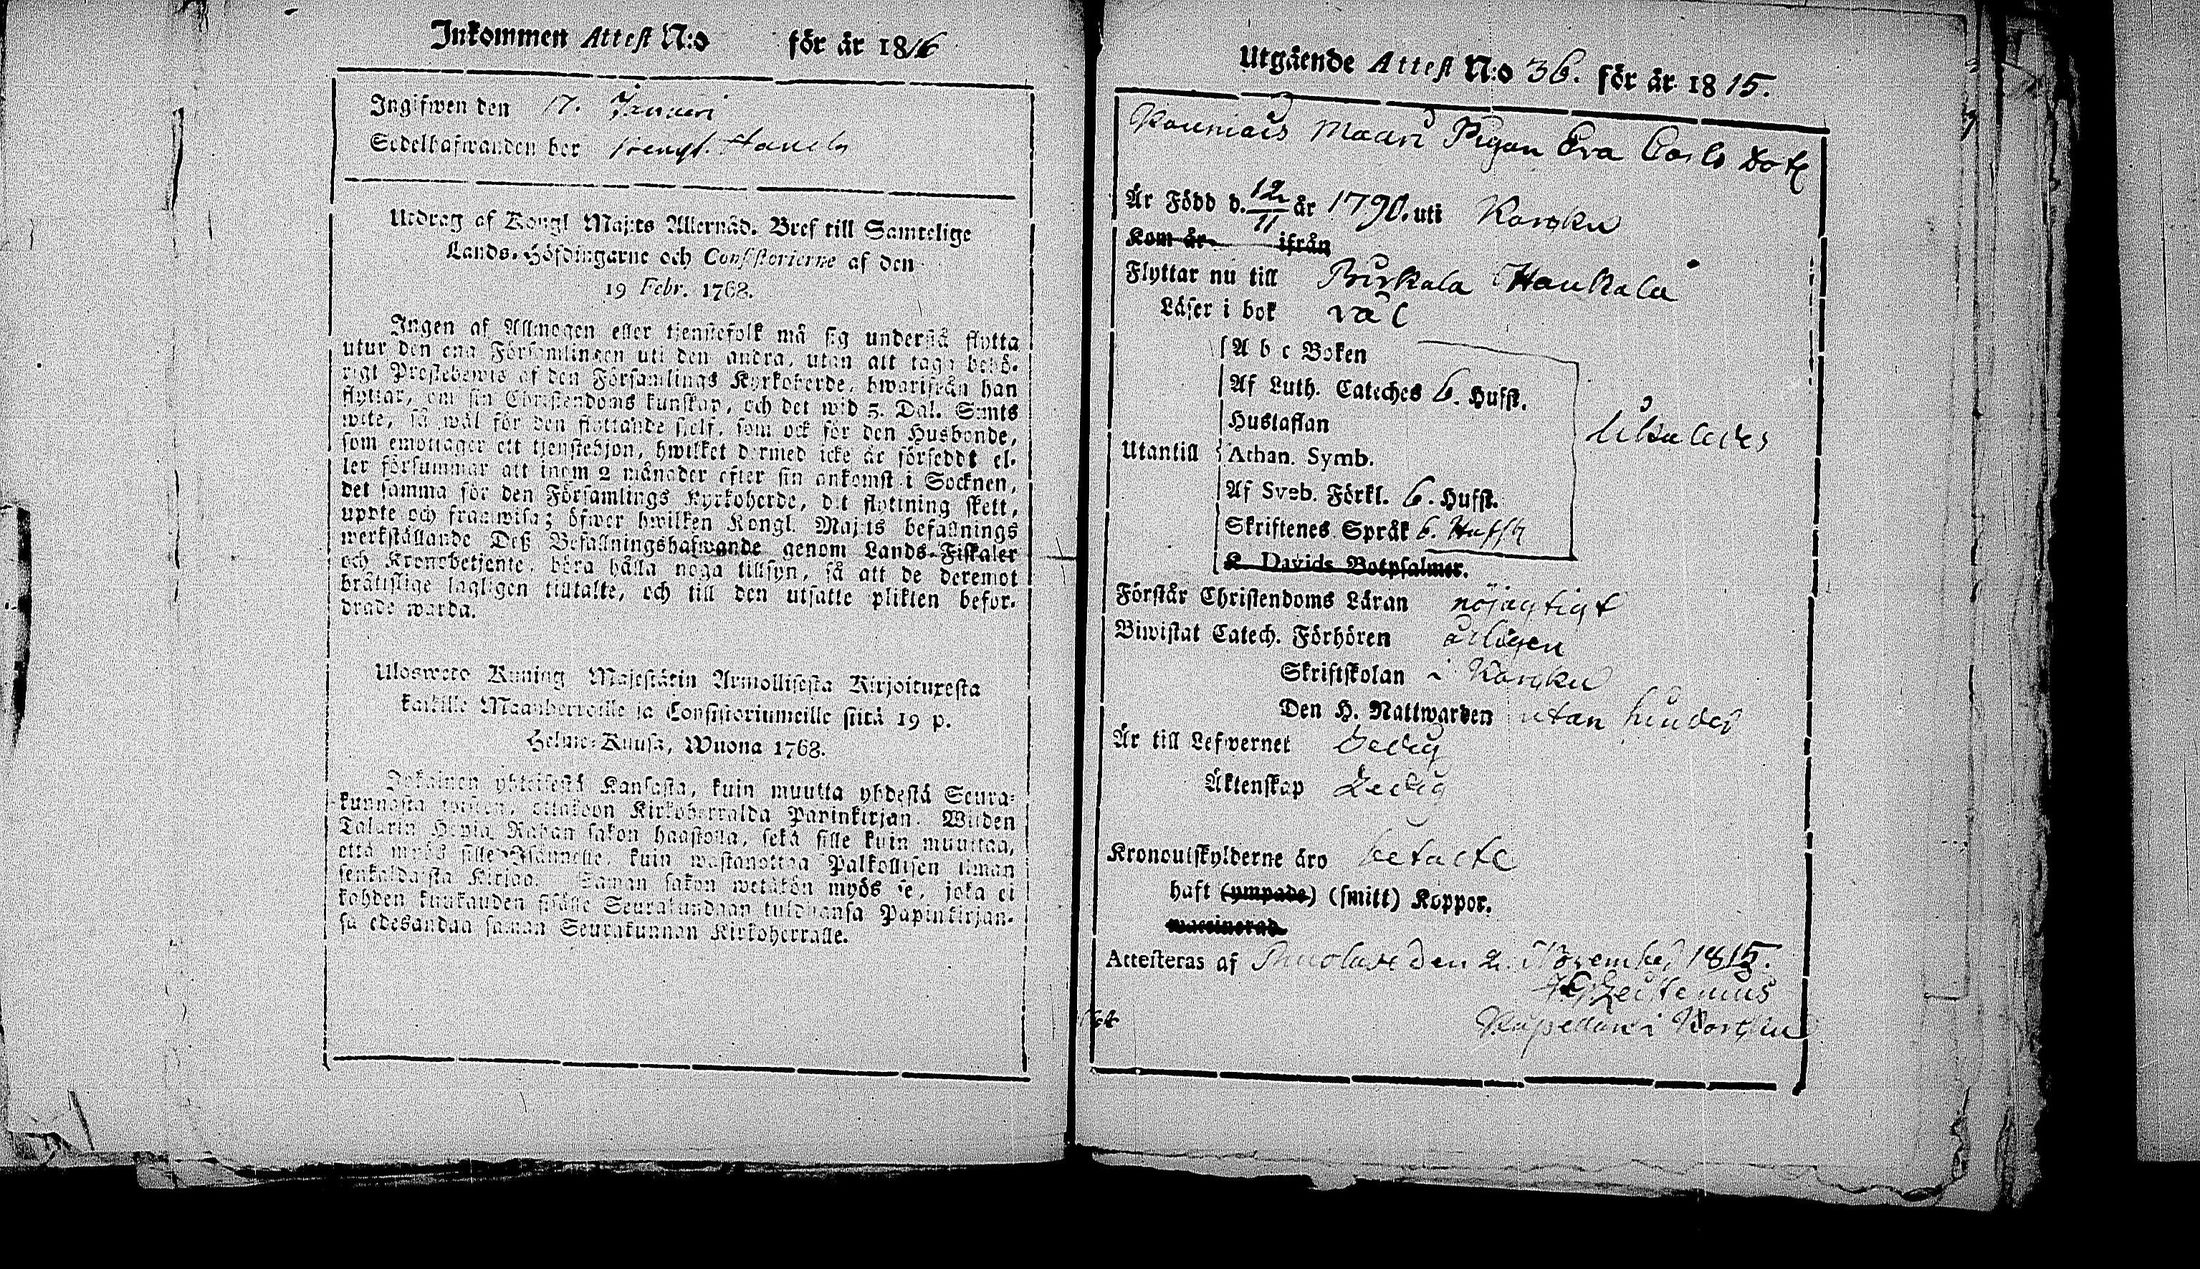 Inkommen Attest N:o för år 1816
Ingifwen den 17. Januari
Sedelhafwanden bor
Utdrag af Kongl Maj:ts Allernåd. Bref till Samtelige
Lands-Höfdingarne och Consistorierne af den
19 Febr. 1768.
Ingen af Allmogen eller tjenstefolk må sig understå flytta
utur den ena Församlingen uti den andra, utan att taga behö-
rigt Prestebewis af den Församlings Kyrkoherde, hwarifrån han
flyttar, om sin Christendoms kunskap, och det wid 5. Dal. S:mts
wite, så wäl för den flyttande sielf, som ock för den Husbonde,
som emottager ett tjenstehjon, hwilket dermed icke är förseddt el-
ler försummar att inom 2 månader efter sin ankomst i Socknen,
det samma för den Församlings Kyrkoherde, dit flyttning skett,
upte och framwisa; öfwer hwilken Kongl. Maj:ts befallnings
werkställande Deß Befallningshafwande genom Lands-Fiskaler
och Kronobetjente, böra hålla noga tillsyn, så att de deremot
bråttslige lagligen tilltalte, och till den utsatte plikten befor-
drade warda.
Uloswето Kuning Majestätin Armollisesta Kirjoituxesta
kaikille Maanherroille ja Consistoriumeille siitä 19 p.
Helme-Kuusa, Wuona 1768.
Jokainen yhteisestä Kansasta, kuin muutta yhdestä Seura-
kunnasta toiseen, ottakoon Kirkoherralda Papinkirjan. Wiiden
Talarin Hopia Rahan sakon haastolla, sekä sille kuin muuttaa,
että myös sille Isännelle, kuin wastanottaa Palkollisen ilman
senkaldaista Kirjaa. Saman sakon wetäkön myös se, joka ei
kahden kuukauden sisälle Seurakundaan tulduansa Papinkirjan-
sa edesandaa saman Seurakunnan Kirkoherralle.
Utgående Attest N:o 36. för år 1815.
Kouniais Maari Pigan Eva Carls Dotr
Är Född d. 12/11 år 1790. uti Karcku
Kom år ifrån
Flyttar nu till Birkala Haukala
Läser i bok väl
A b c Boken
Af Luth. Cateches 6. Hufst.
Hustaflan
Utantill Athan. Symb. likaledes
Af Sveb. Förkl. 6. Hufst.
Skriftenes Språk 6. Hufst
K. Davids Botpsalmer.
Förstår Christendoms Läran nöjagtigt
Biwistat Catech. Förhören årligen
Skriftskolan i Karcku
Den H. Nattwarden utan hinder
Är till Lefwernet Sedig
Äktenskap Ledig
Kronoutskylderne äro betalte
haft (ympade) (smitt) Koppor.
waccinerad
Attesteras af den 2. November 1815.
Kapellan i Karcku